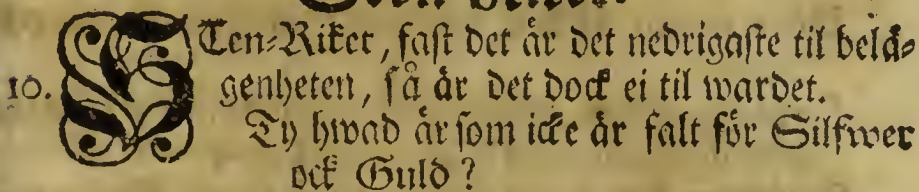 STen-Riket, fast det är det nedrigaste til belä-
10. genheten, så är det dock ei til wärdet.
Ty hwad är som icke är falt för Silfwer
ock Guld?